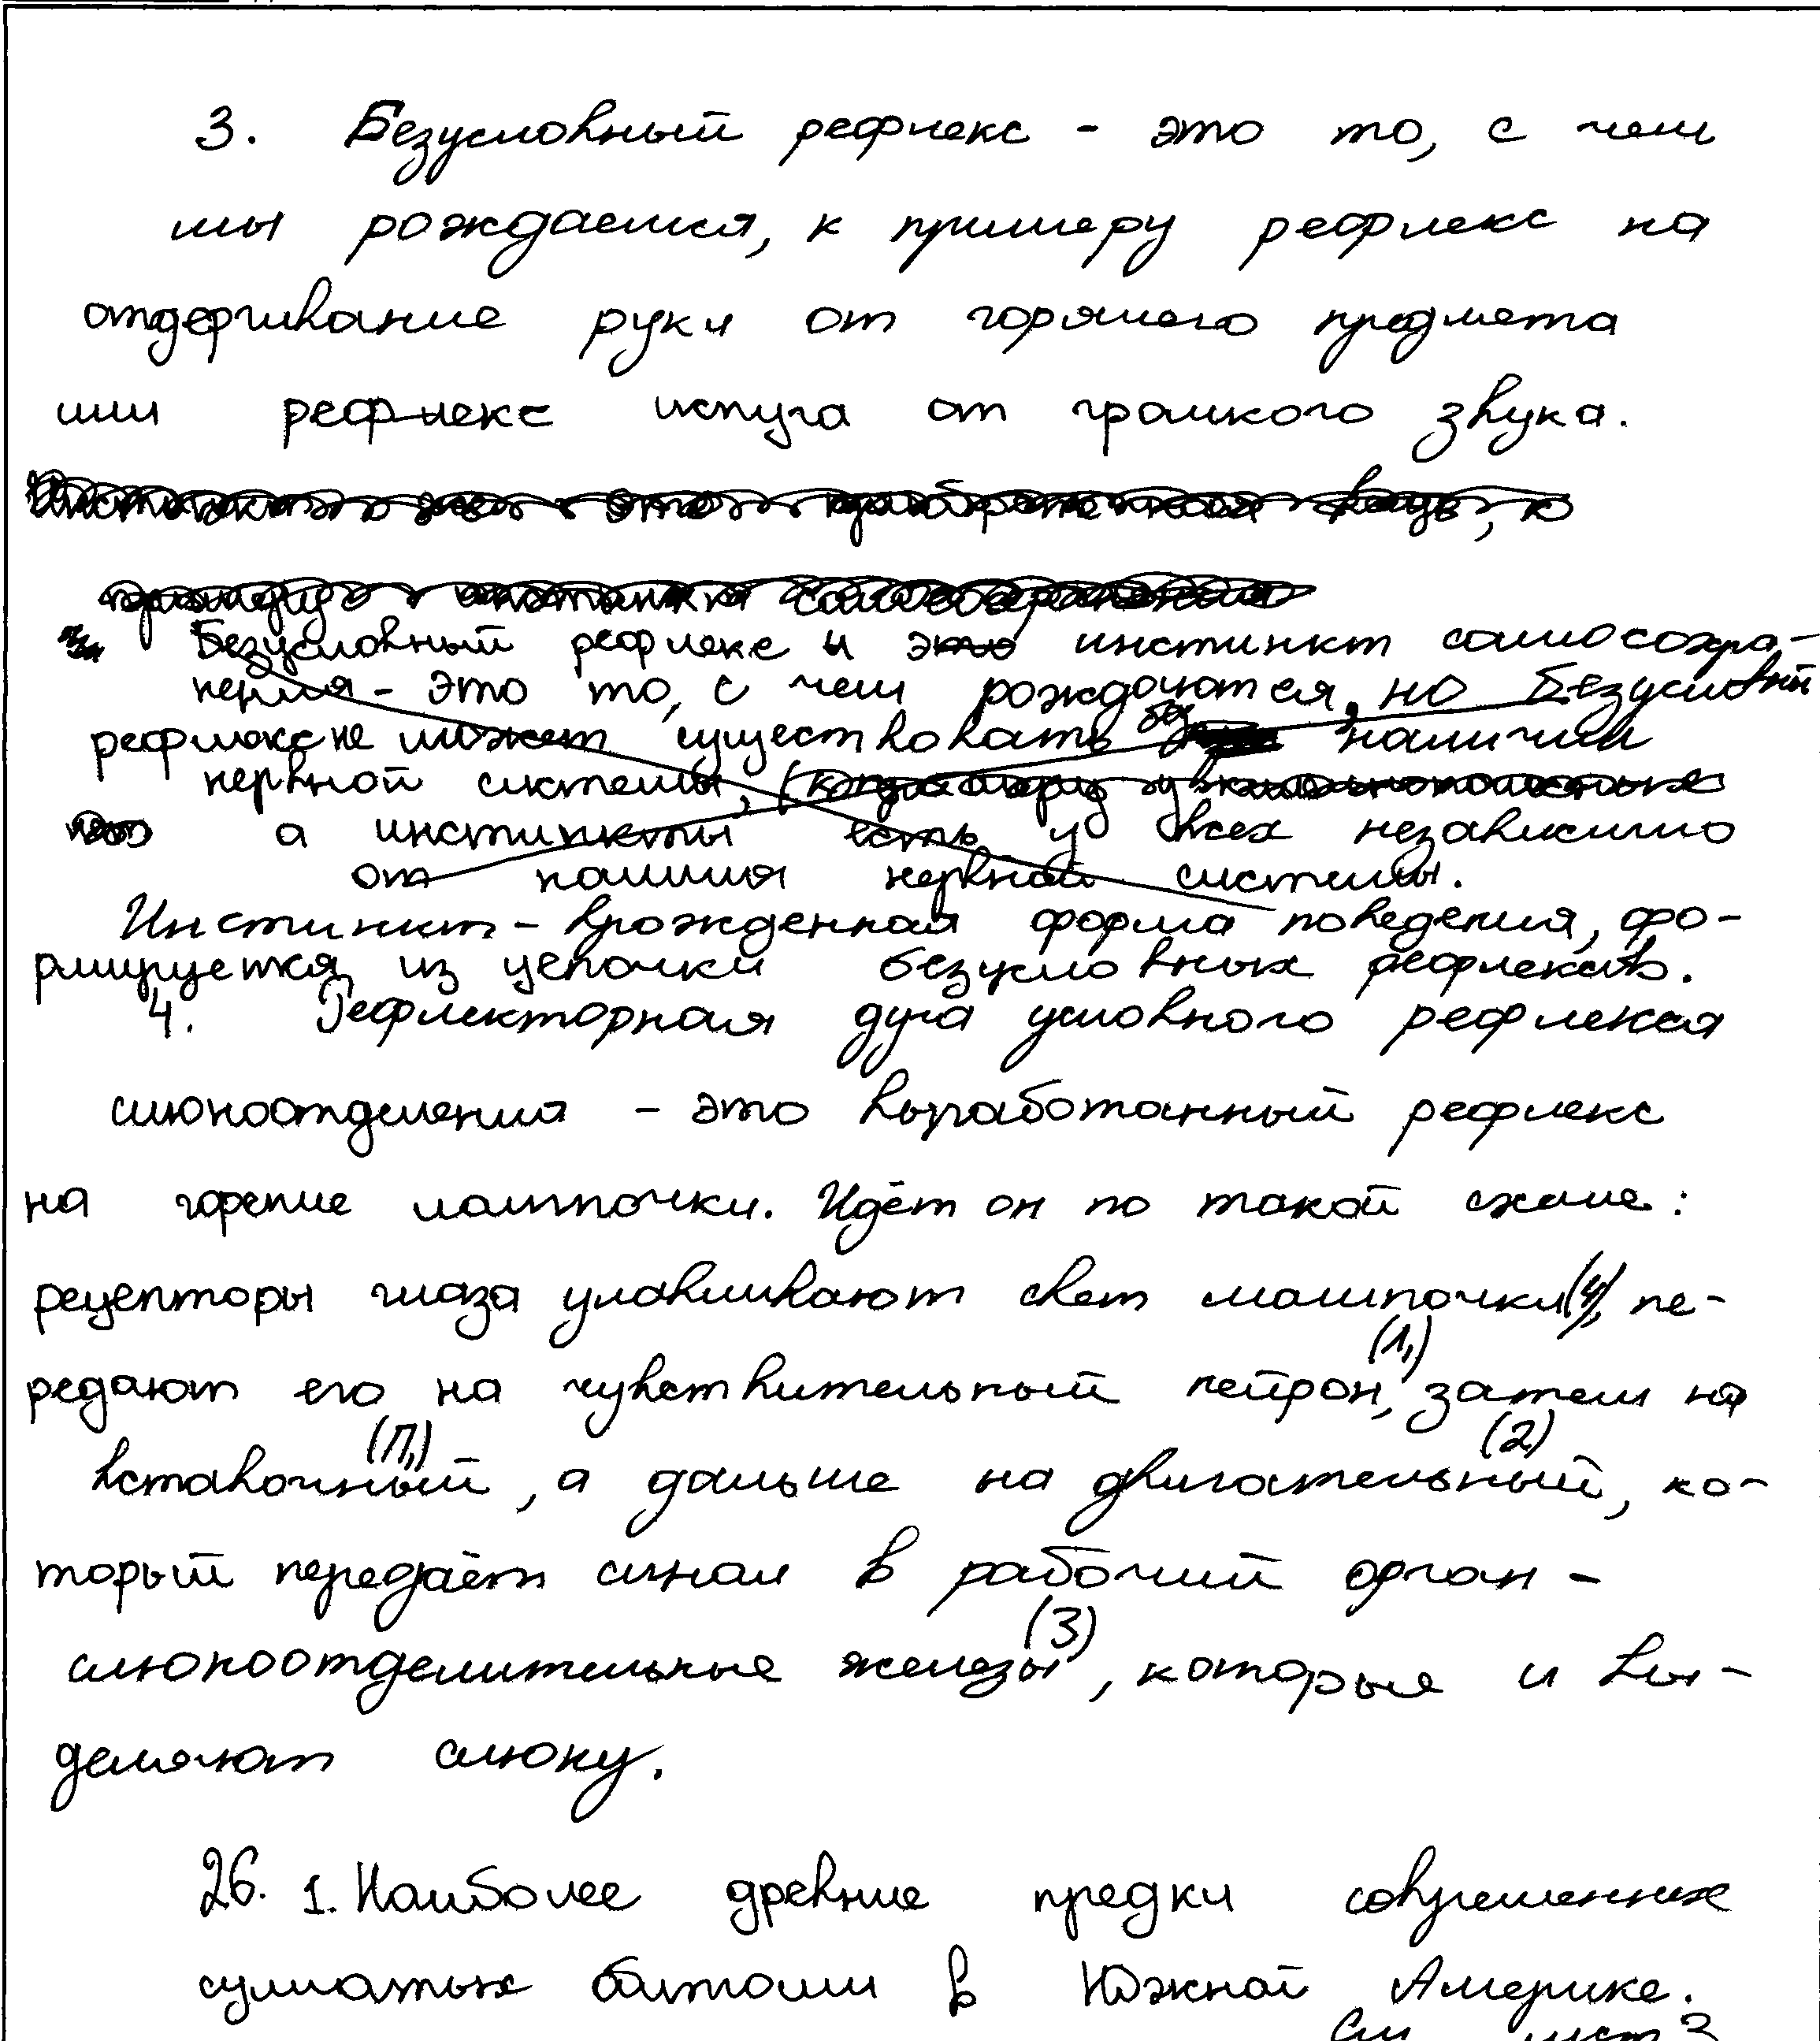 3. Безусловный рефлекс - это то, с чем
мы рождаемся, к примеру рефлекс на
отдергивание руки от горячего предмета
или рефлекс испуга от громкого звука.
Безусловный рефлекс и это инстинкт самосохра-
нения - это то, с чем рождаются, но безусловный
рефлекс не может существовать без наличия
нервной системы,
а инстинкты есть у всех независимо
от наличия нервной системы.
Инстинкт - врожденная форма поведения, фо-
рмируется из цепочки безусловных рефлексов.
4. Рефлекторная дуга условного рефлекса
слюноотделения - это выработанный рефлекс
на горение лампочки. Идёт он по такой схеме:
рецепторы глаза улавливают свет лампочки(4), пе-
редают его на чувствительный нейрон(Л₁), затем на
вставочный(П₁), а дальше на двигательный(2), ко-
торый передаёт сигнал в рабочий орган -
слюноотделительные железы(3), которые и вы-
деляют слюну.
26. 1. Наиболее древние предки современных
сумчатых обитали в Южной Америке.
См. лист 2